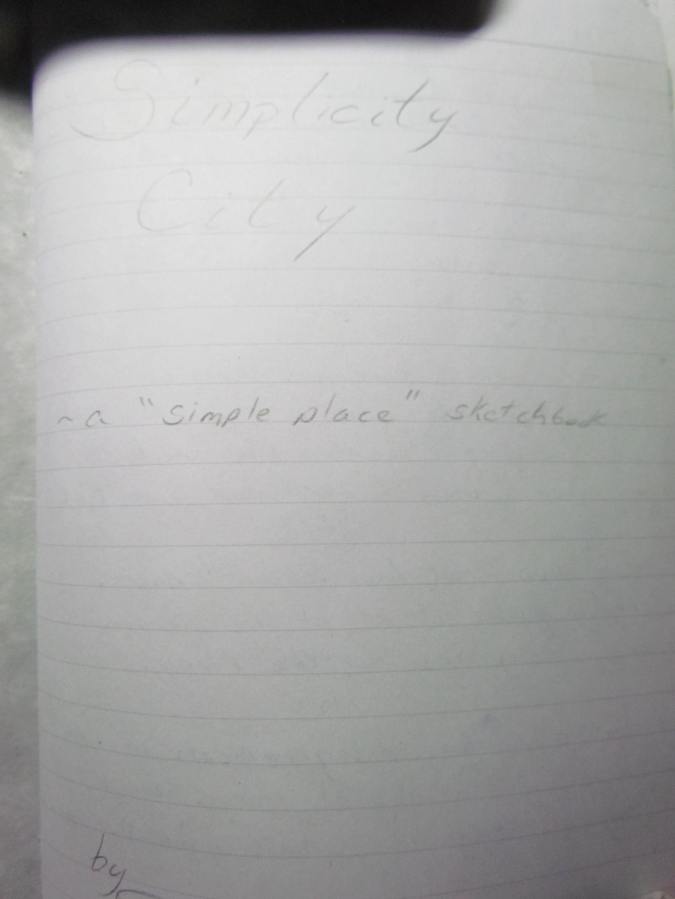 Simplicity
City
~ a "simple place" sketchbook
by